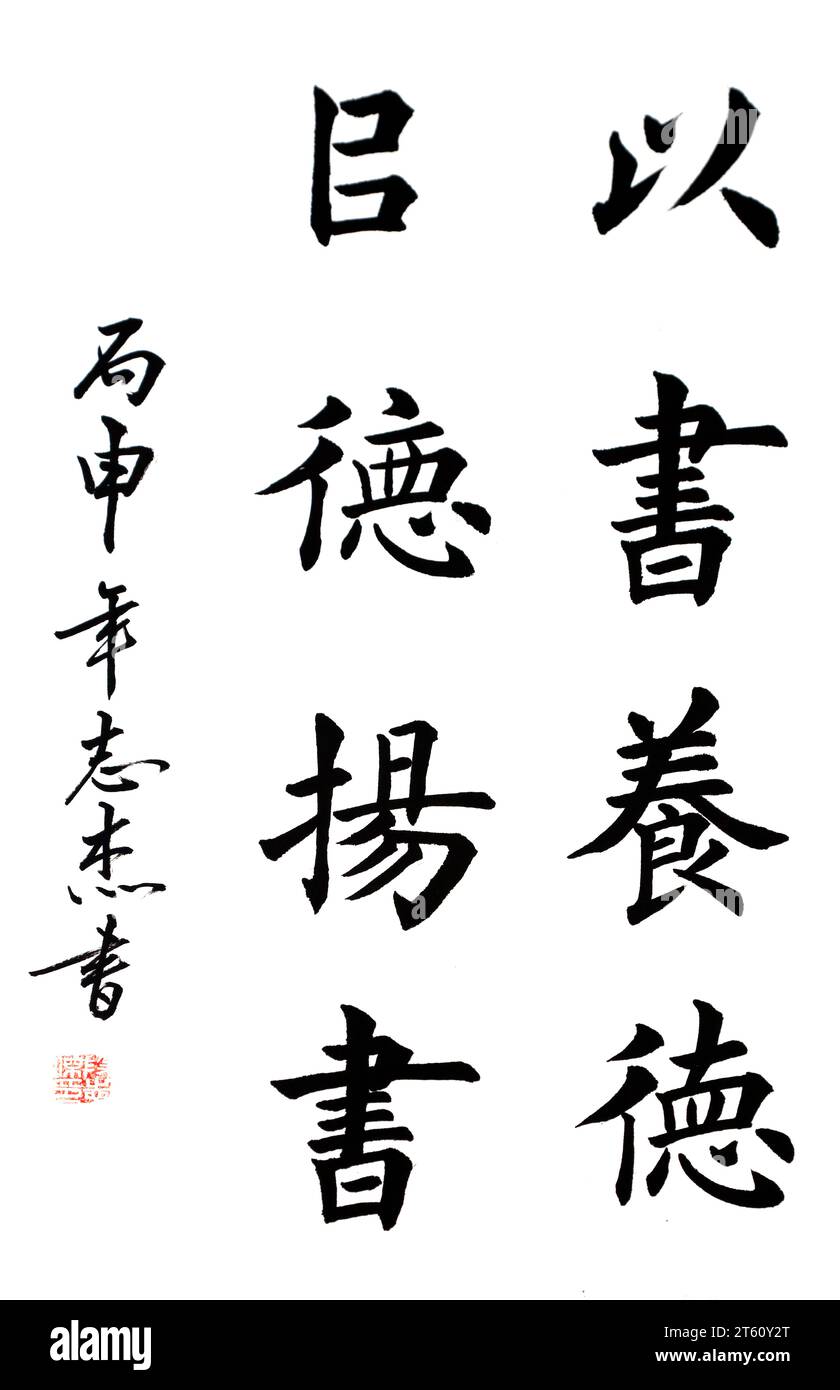 以書養德
㠯德揚書
丙申年志杰書
alamy
Image ID: 2T60Y2T
www.alamy.com